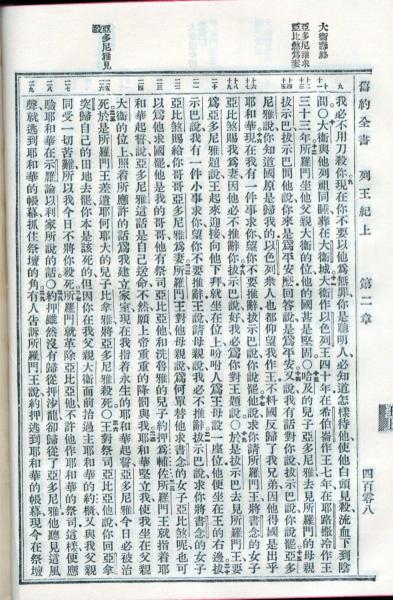 大衛壽終
亞多尼雅求
亞比煞爲妻
亞多尼雅見
殺
舊約全書 列王紀上 第二章 四百零八
我必不用刀殺你現在你不要以他爲無罪你是聰明人必知道怎樣待他使他白頭見殺流血下到陰
間○大衛與他列祖同睡葬在大衛城大衛作以色列王四十年在希伯崙作王七年在耶路撒冷作王
三十三年所羅門坐他父親大衛的位他的國甚是堅固○哈及的兒子亞多尼雅去見所羅門的母親
拔示巴拔示巴問他說你來是爲平安麼回答說是爲平安又說我有話對你說拔示巴說你說罷亞多
尼雅說你知道國原是歸我的以色列衆人也都仰望我作王不料國反歸了我兄弟因他得國是出乎
耶和華現在我有一件事求你望你不要推辭拔示巴說你說罷他說求你請所羅門王將書念的女子
亞比煞賜我爲妻因他必不推辭你拔示巴說好我必爲你對王題說○於是拔示巴去見所羅門王要
爲亞多尼雅題說王起來迎接向他下拜就坐在位上吩咐人爲王母設一座位他便坐在王的右邊拔
示巴說我有一件小事求你望你不要推辭王說請母親說我必不推辭拔示巴說求你將書念的女子
亞比煞賜給你哥哥亞多尼雅爲妻所羅門王對他母親說爲何單替他求書念的女子亞比煞呢也可
以爲他求國罷他是我的哥哥他有祭司亞比亞他和洗魯雅的兒子約押爲輔佐所羅門王就指着耶
和華起誓說亞多尼雅這話是自己送命不然願上帝重重的降罰與我耶和華堅立我使我坐在父親
大衛的位上照着所應許的話爲我建立家室現在我指着永生的耶和華起誓亞多尼雅今日必被治
死於是所羅門王差遣耶何耶大的兒子比拿雅將亞多尼雅殺死○王對祭司亞比亞他說你回亞拿
突歸自己的田地去罷你本是該死的但因你在我父親大衛面前抬過主耶和華的約櫃又與我父親
同受一切苦難所以我今日不將你殺死所羅門就革除亞比亞他不許他作耶和華的祭司這樣便應
驗耶和華在示羅論以利家所說的話○約押雖然沒有歸從押沙龍卻歸從了亞多尼雅他聽見這風
聲就逃到耶和華的帳幕抓住祭壇的角有人告訴所羅門王說約押逃到耶和華的帳幕現今在祭壇